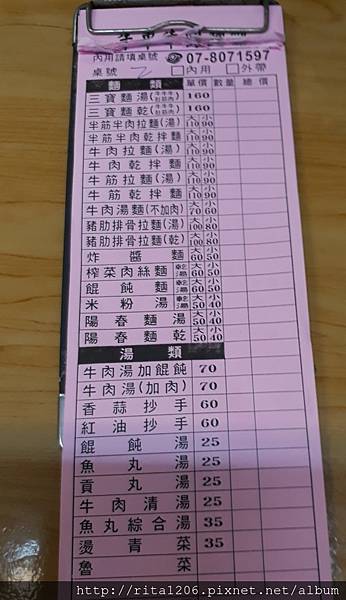 內用請填桌號 07-8071597
桌號 2 內用 外帶
麵類 單價 數量 總價
三寶麵湯(牛牛牛肚筋肉) 160
三寶麵乾(牛牛牛肚筋肉) 160
半筋半肉拉麵(湯) 大110 小90
半筋半肉乾拌麵 大110 小90
牛肉拉麵(湯) 大110 小90
牛肉乾拌麵 大110 小90
牛筋拉麵(湯) 大110 小90
牛筋乾拌麵 大110 小90
牛肉湯麵(不加肉) 大70 小60
豬肋排骨拉麵(湯) 大100 小80
豬肋排骨拉麵(乾) 大100 小80
炸醬麵 大60 小50
榨菜肉絲麵 乾湯 大60 小50
餛飩麵 乾湯 大60 小50
米粉湯 乾湯 大50 小40
陽春麵湯 大50 小40
陽春麵乾 大50 小40
湯類
牛肉湯加餛飩 70
牛肉湯(加肉) 70
香蒜抄手 60
紅油抄手 60
餛飩湯 25
魚丸湯 25
貢丸湯 25
牛肉清湯 25
魚丸綜合湯 35
燙青菜 35
魯菜
http://rita1206.pixnet.net/album